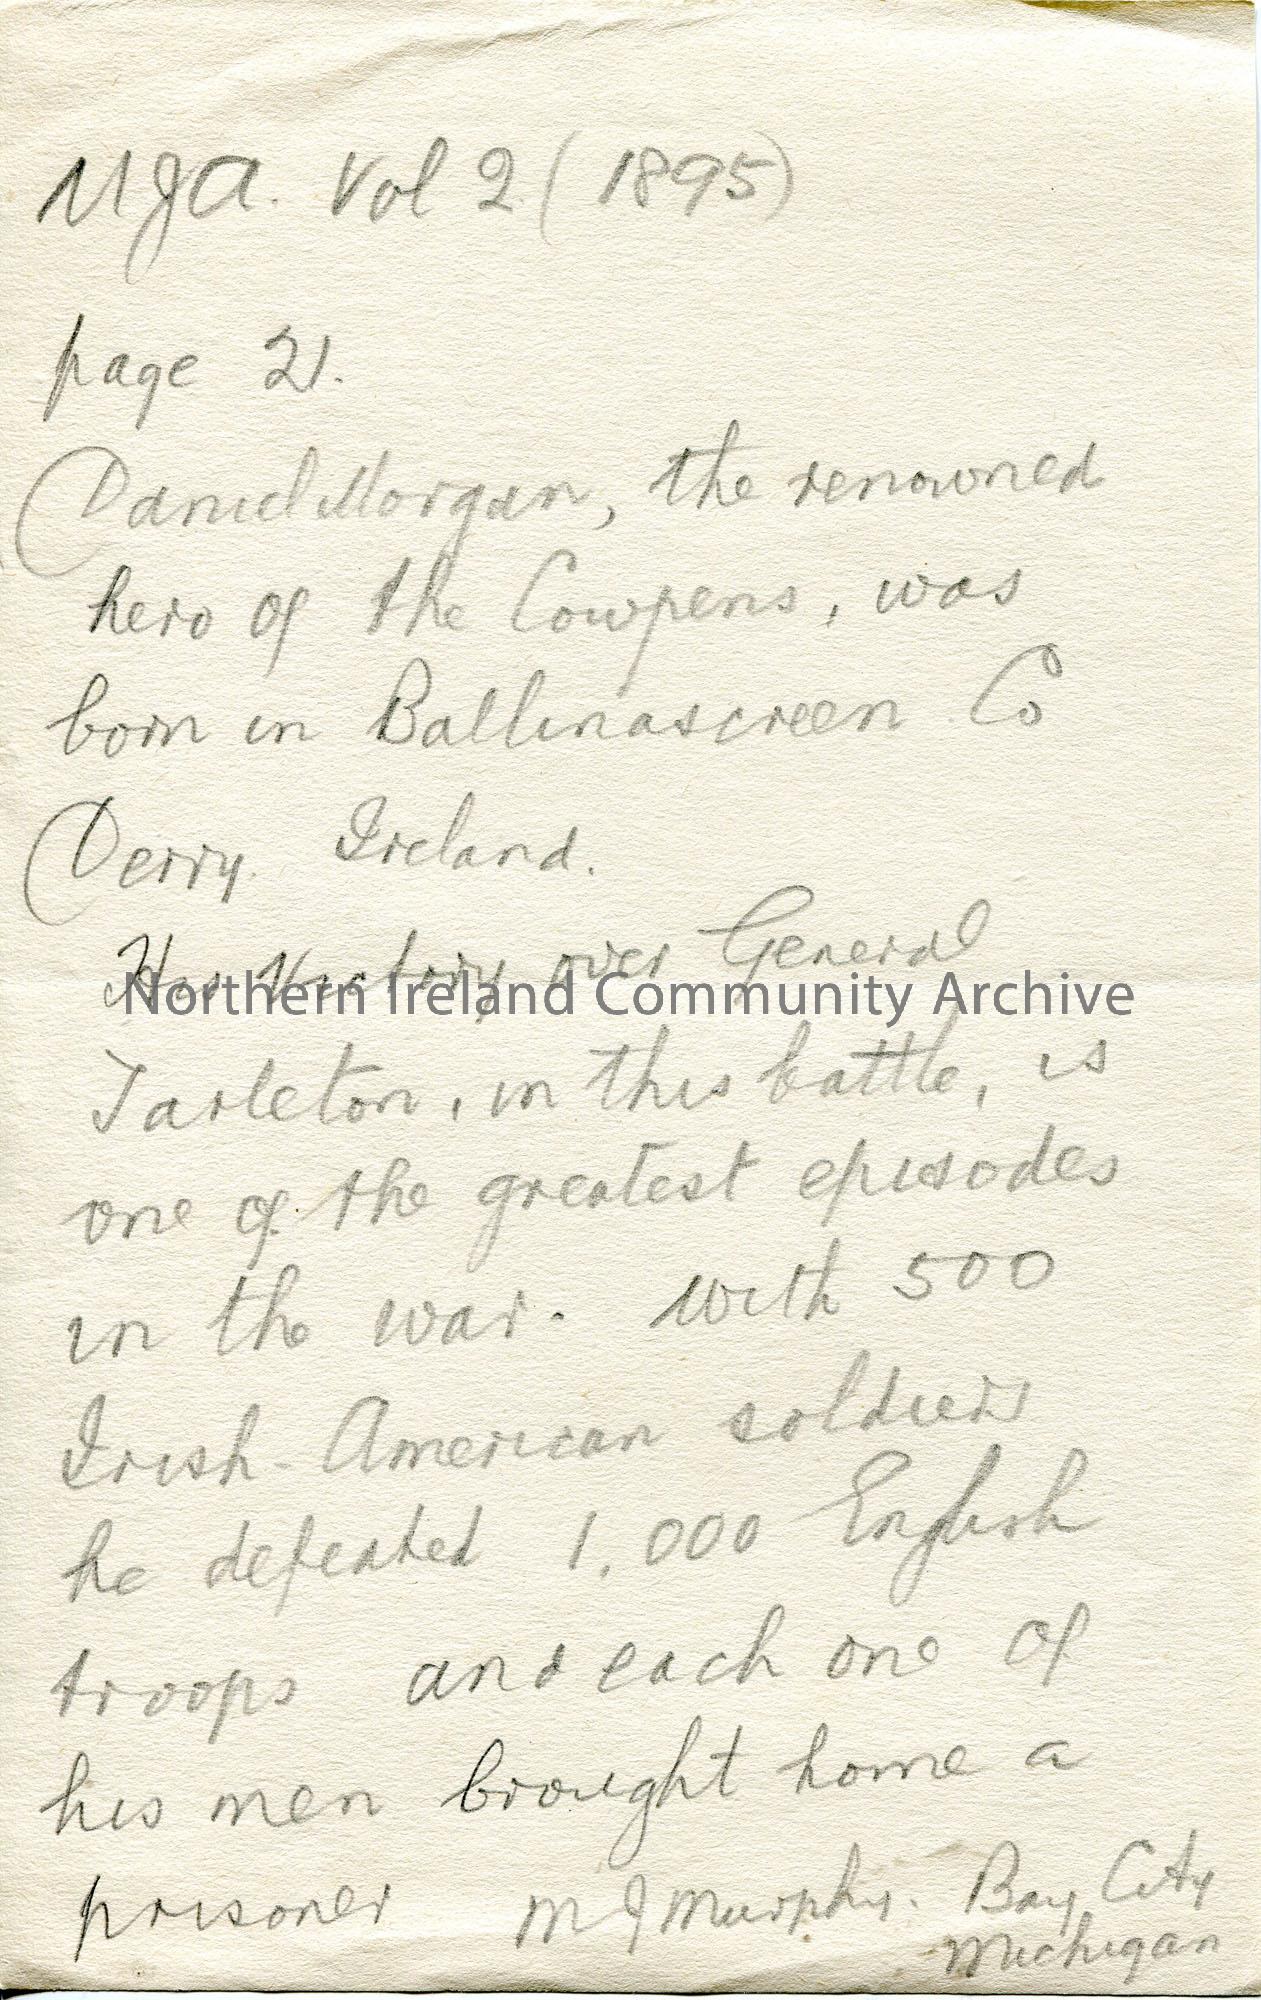 UJA. Vol 2 (1895)
page 21.
Daniel Morgan, the renowned
hero of the Cowpens, was
born in Ballinascreen Co
Derry. Ireland.
His Victory over General
Northern Ireland Community Archive
Tarleton, in this battle, is
one of the greatest episodes
in the war. With 500
Irish-American soldiers
he defeated 1,000 English
troops and each one of
his men brought home a
prisoner M J Murphy. Bay City
Michigan